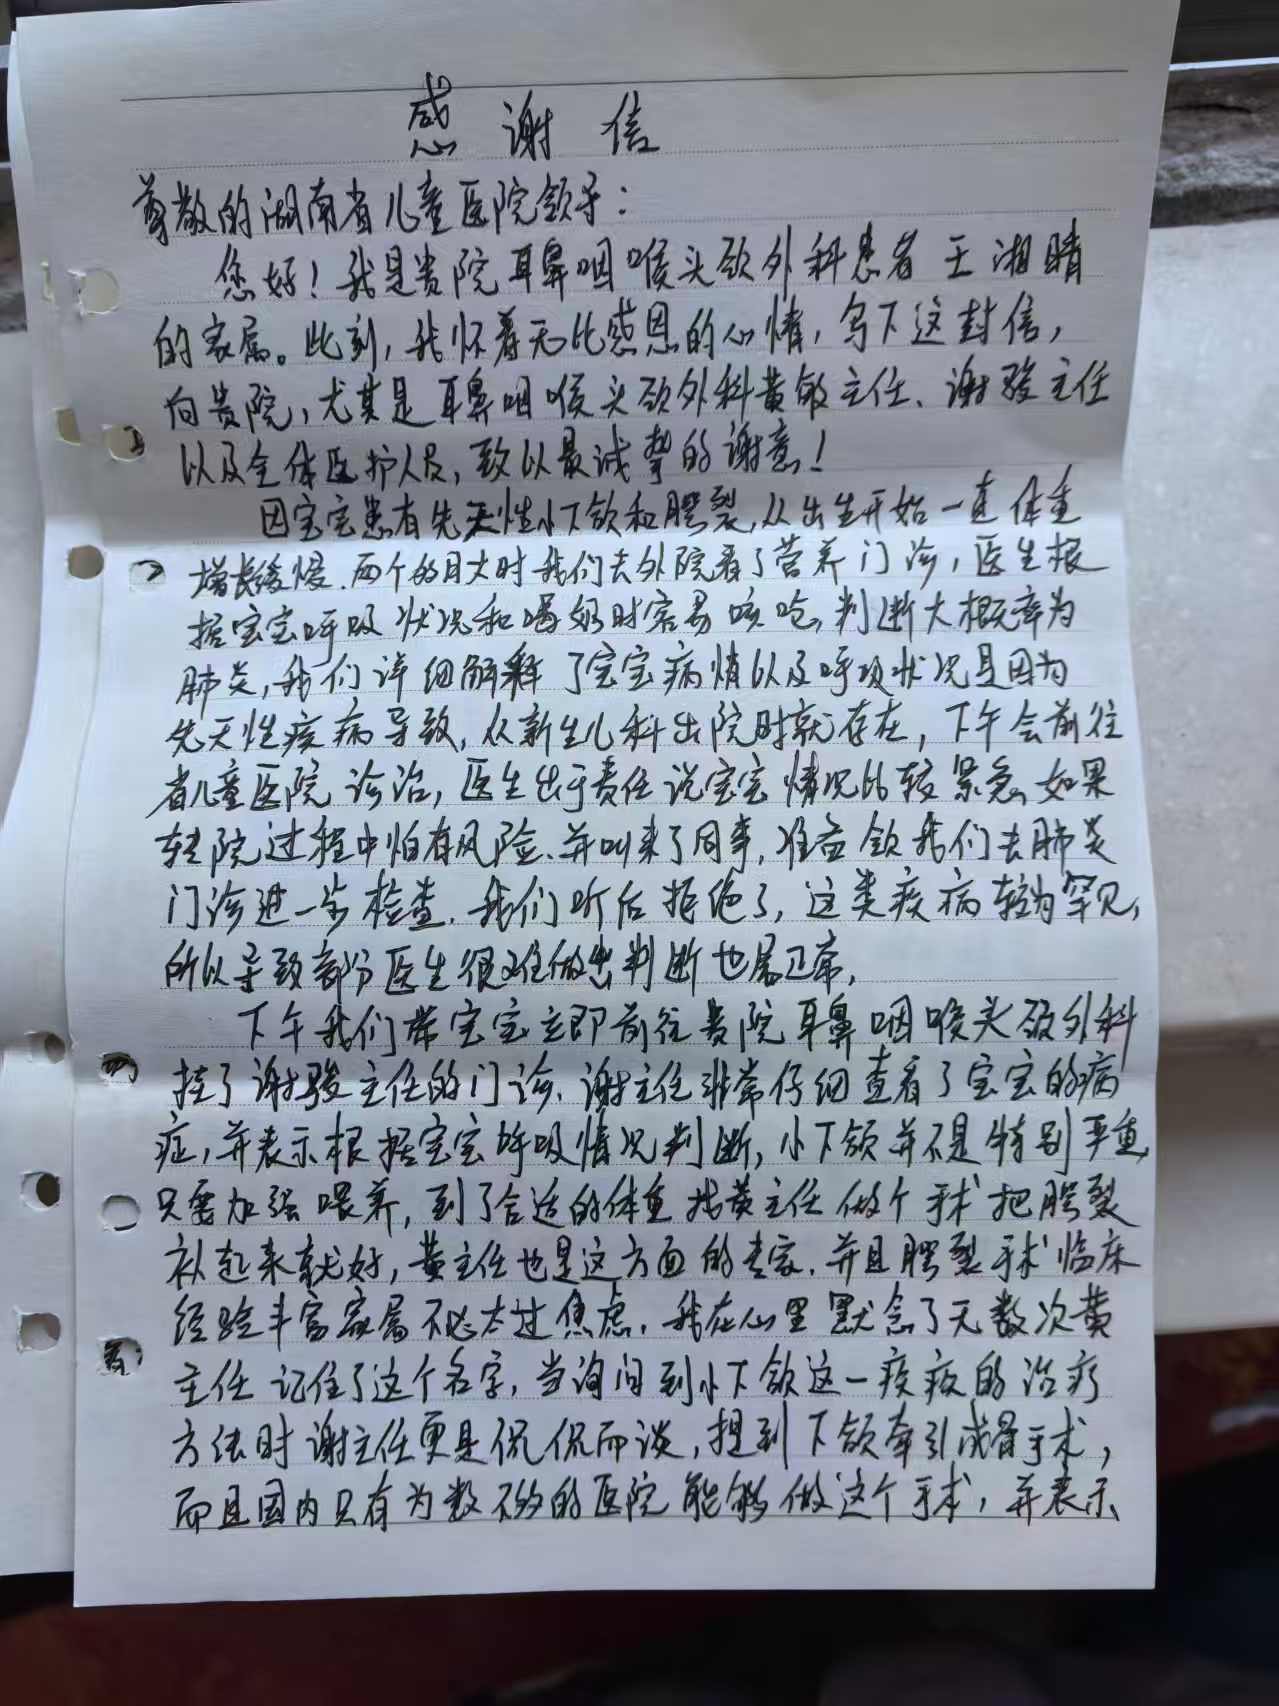 感谢信
尊敬的湖南省儿童医院领导：
您好！我是贵院耳鼻咽喉头颈外科患者王湘晴
的家属。此刻，我怀着无比感恩的心情，写下这封信，
向贵院，尤其是耳鼻咽喉头颈外科黄敏主任、谢骏主任
以及全体医护人员，致以最诚挚的谢意！
因宝宝患有先天性小下颌和腭裂，从出生开始一直体重
增长缓慢．两个的月大时我们去外院看了营养门诊，医生根
据宝宝呼吸状况和喝奶时容易咳呛，判断大概率为
肺炎，我们详细解释了宝宝病情以及呼吸状况是因为
先天性疾病导致，从新生儿科出院时就存在，下午会前往
省儿童医院诊治，医生出于责任说宝宝情况比较紧急，如果
转院过程中怕有风险、并叫来了同事，准备领我们去肺炎
门诊进一步检查．我们听后拒绝了，这类疾病较为罕见，
所以导致部分医生很难做出判断也属正常，
下午我们带宝宝立即前往贵院耳鼻咽喉头颈外科
挂了谢骏主任的门诊、谢主任非常仔细查看了宝宝的病
症，并表示根据宝宝呼吸情况判断，小下颌并不是特别严重，
只需加强喂养，到了合适的体重找黄主任做个手术把腭裂
补起来就好，黄主任也是这方面的专家．并且腭裂手术临床
经验丰富家属不必太过焦虑．我在心里默念了无数次黄
主任记住了这个名字，当询问到小下颌这一疾病的治疗
方法时谢主任更是侃侃而谈，提到下颌牵引成骨手术，
而且国内只有为数不多的医院能够做这个手术，并表示